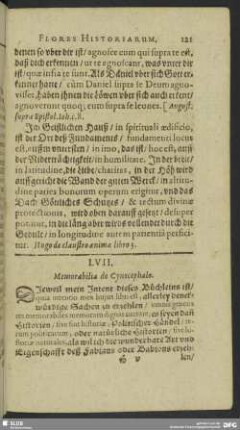 FLORES HISTORIARUM. 121
denen so vber dir ist / agnosce eum qui supra te est,
daß dich erkennen / ut te agnoscant, was vnter dir
ist / quæ infra te sunt. Als Daniel vber sich Gott er-
kennet hatte / cùm Daniel supra se Deum agno-
visset, haben ihnen die Löwen vber sich auch erkent /
agnoverunt quoq; eum supra se leones. [August.
supra Epistol. Ioh. c. 8.
Im Geistlichen Hauß / in spirituali ædificio,
ist der Ort deß Fundaments / fundamenti locus
est, außm vntersten / in imo, das ist / hoc est, auff
der Nidertrâchtigkeit / in humilitate. In der breit /
in latitudine, die liebe / charitas, in der Höh wird
auffgericht die Wand der guten Werck / in altitu-
dine paries bonorum operum erigitur, vnd das
Dach Göttliches Schutzes / & tectum divinæ
protectionis, wird oben darauff gesetzt / desuper
ponitur, in die läng aber wirds vollendet durch die
Gedult / in longitudine autem patientiâ perfici-
tur. Hugo de claustro anima libro 3.
LVII.
Memorabilia de Cynocephalo.
Dieweil mein Intent dieses Büchleins ist /
quia intentio mea hujus libri est, allerley denck-
würdige Sachen zu erzehlen /
es seyen daß
Historien / sive sint historiæ, Politischer Händel /
oder natürliche Historien /
als
Eigenschafft deß Fabians oder Babions
H v len /